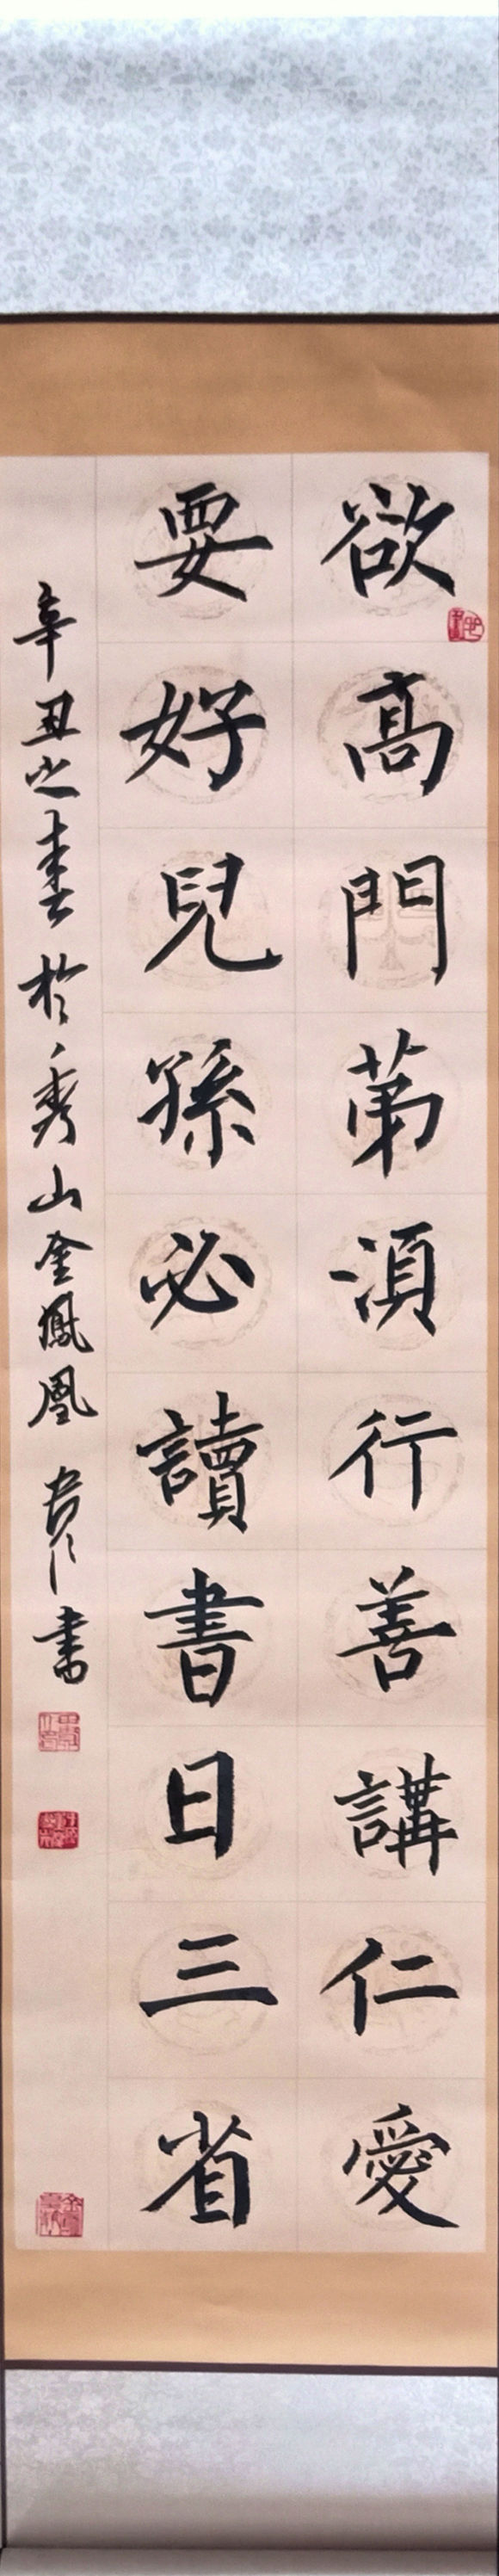 欲高門第須行善講仁愛
要好兒孫必讀書日三省
辛丑之春於秀山金鳳凰 書